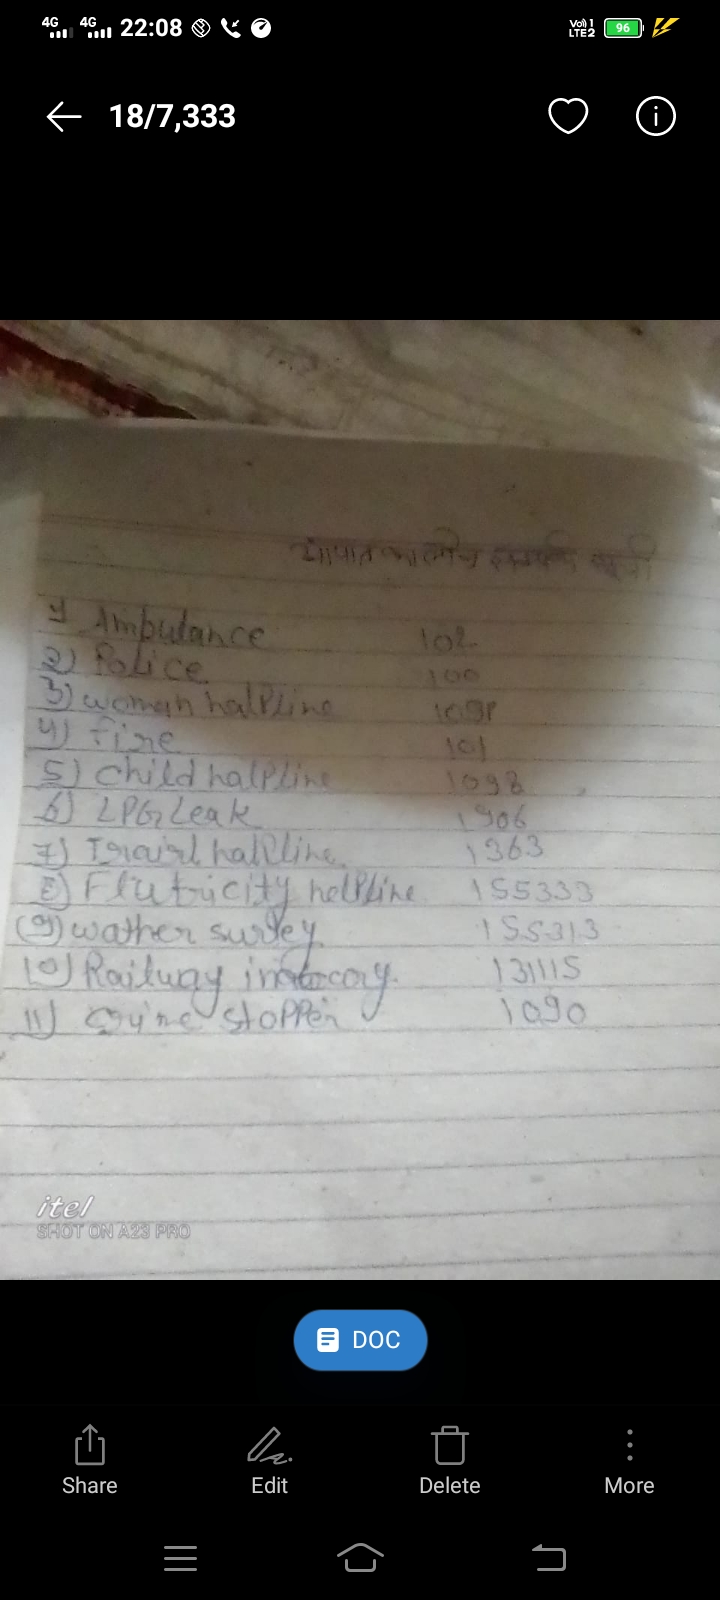 4G 4G 22:08 Vo) 1 LTE2 96
18/7,333
आपातकालीन
1) Ambulance 102
2) Police 100
3) woman halpline 1091
4) fire 101
5) child halpline 1098
6) LPG Leak 1906
7) halpline 1363
8) helpline 155333
(9) wather survey 155313
10) Railway 131115
11) stopper 1090
itel
SHOT ON A23 PRO
DOC
Share Edit Delete More